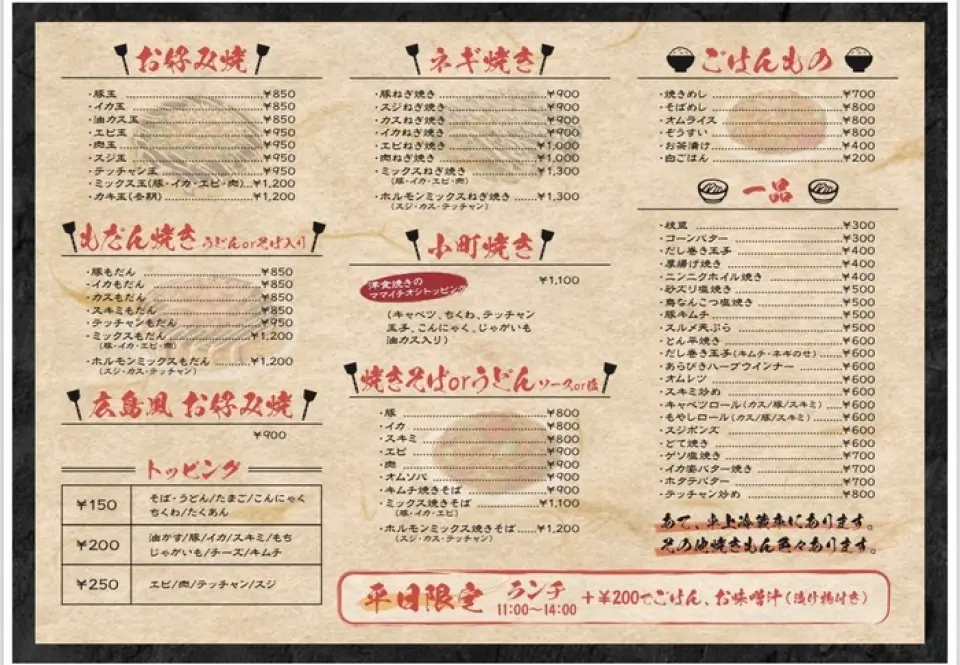 お好み焼
・豚玉 ¥850
・イカ玉 ¥850
・油カス玉 ¥850
・エビ玉 ¥950
・肉玉 ¥950
・スジ玉 ¥950
・テッチャン玉 ¥950
・ミックス玉(豚・イカ・エビ・肉)…¥1,200
・カキ玉(冬期) ¥1,200
もだん焼き うどんorそば入り
・豚もだん ¥850
・イカもだん ¥850
・カスもだん ¥850
・スキミもだん ¥850
・テッチャンもだん ¥950
・ミックスもだん ¥1,200
(豚・イカ・エビ・肉)
・ホルモンミックスもだん ¥1,200
(スジ・カス・テッチャン)
広島風 お好み焼
¥900
トッピング
¥150 そば・うどん/たまご/こんにゃく
ちくわ/たくあん
¥200 油かす/豚/イカ/スキミ/もち
じゃがいも/チーズ/キムチ
¥250 エビ/肉/テッチャン/スジ
ネギ焼き
・豚ねぎ焼き ¥900
・スジねぎ焼き ¥900
・カスねぎ焼き ¥900
・イカねぎ焼き ¥900
・エビねぎ焼き ¥1,000
・肉ねぎ焼き ¥1,000
・ミックスねぎ焼き ¥1,300
(豚・イカ・エビ・肉)
・ホルモンミックスねぎ焼き ¥1,300
(スジ・カス・テッチャン)
小町焼き
洋食焼きの
ママイチオシトッピング
¥1,100
(キャベツ、ちくわ、テッチャン
玉子、こんにゃく、じゃがいも
油カス入り)
焼きそばorうどん ソースor塩
・豚 ¥800
・イカ ¥800
・スキミ ¥800
・エビ ¥900
・肉 ¥900
・オムソバ ¥900
・キムチ焼きそば ¥900
・ミックス焼きそば ¥1,100
(豚・イカ・エビ)
・ホルモンミックス焼きそば ¥1,200
(スジ・カス・テッチャン)
ごはんもの
・焼きめし ¥700
・そばめし ¥800
・オムライス ¥800
・ぞうすい ¥800
・お茶漬け ¥400
・白ごはん ¥200
一品
・枝豆 ¥300
・コーンバター ¥300
・だし巻き玉子 ¥400
・厚揚げ焼き ¥400
・ニンニクホイル焼き ¥400
・砂ズリ塩焼き ¥500
・鳥なんこつ塩焼き ¥500
・豚キムチ ¥500
・スルメ天ぷら ¥500
・とん平焼き ¥600
・だし巻き玉子(キムチ・ネギのせ) ¥600
・あらびきハーブウインナー ¥600
・オムレツ ¥600
・スキミ炒め ¥600
・キャベツロール(カス/豚/スキミ) ¥600
・もやしロール(カス/豚/スキミ) ¥600
・スジポンズ ¥600
・どて焼き ¥600
・ゲソ塩焼き ¥700
・イカ姿バター焼き ¥700
・ホタテバター ¥700
・テッチャン炒め ¥800
あて、卓上冷蔵庫にあります。
その他焼きもん色々あります。
平日限定 ランチ 11:00〜14:00 +¥200でごはん、お味噌汁(漬け物付き)